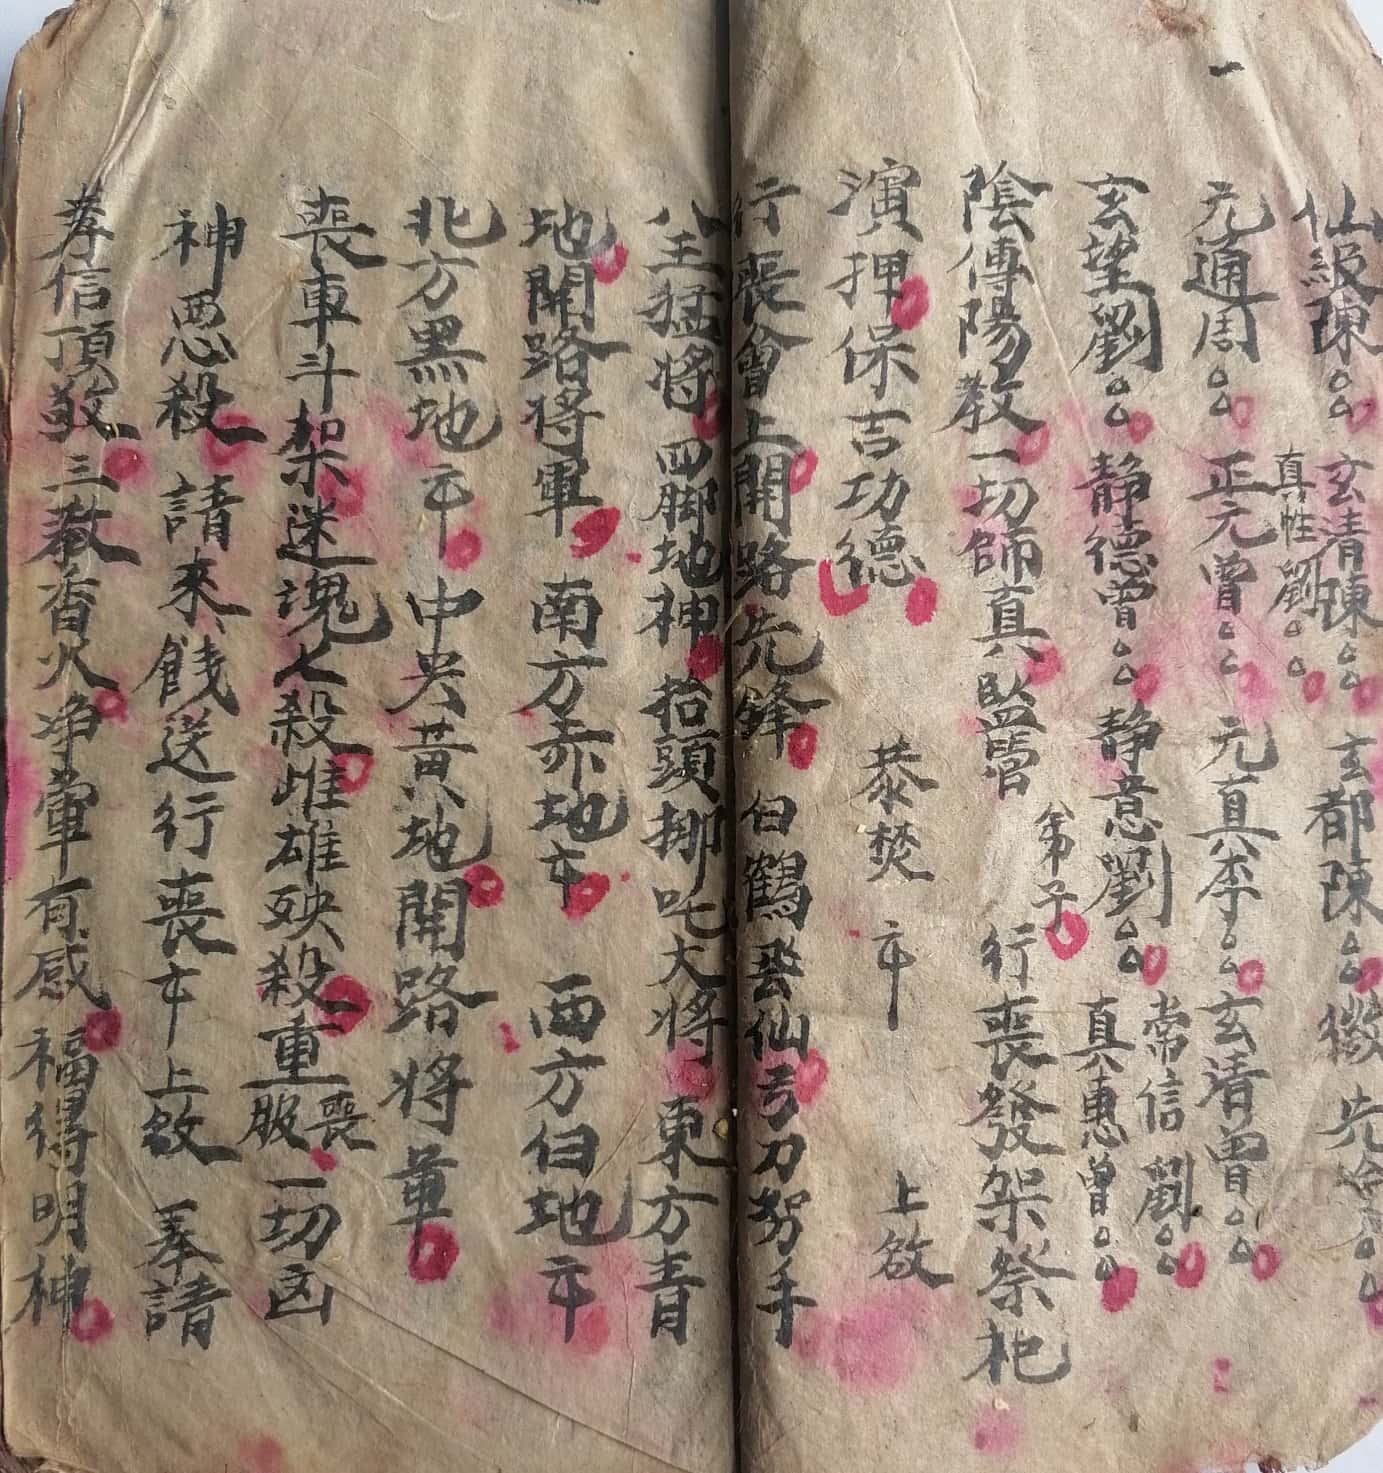 仙級陳 玄清陳 玄都陳 徽先
真性劉
元通周 正元曾 元真李 玄清曾
常信劉
玄望劉 静德曾 静意劉 真惠曾
弟子
陰傳陽教一切師真監醮 行喪發架祭杷
演押保吉功德 恭焚 上啟
行喪會上開路先鋒 白鶴登仙弓刀努手
仝猛將 四脚地神 抬頭挪吒大將 東方青
地開路将軍 南方赤地 西方白地
北方黑地 中央黃地開路将軍
喪車斗架迷魂七殺雌雄殃殺重喪服一切凶
神恶殺 請來餞送行喪 上啟 奉請
孝信頂敬 三教香火净軍有感 福得明神